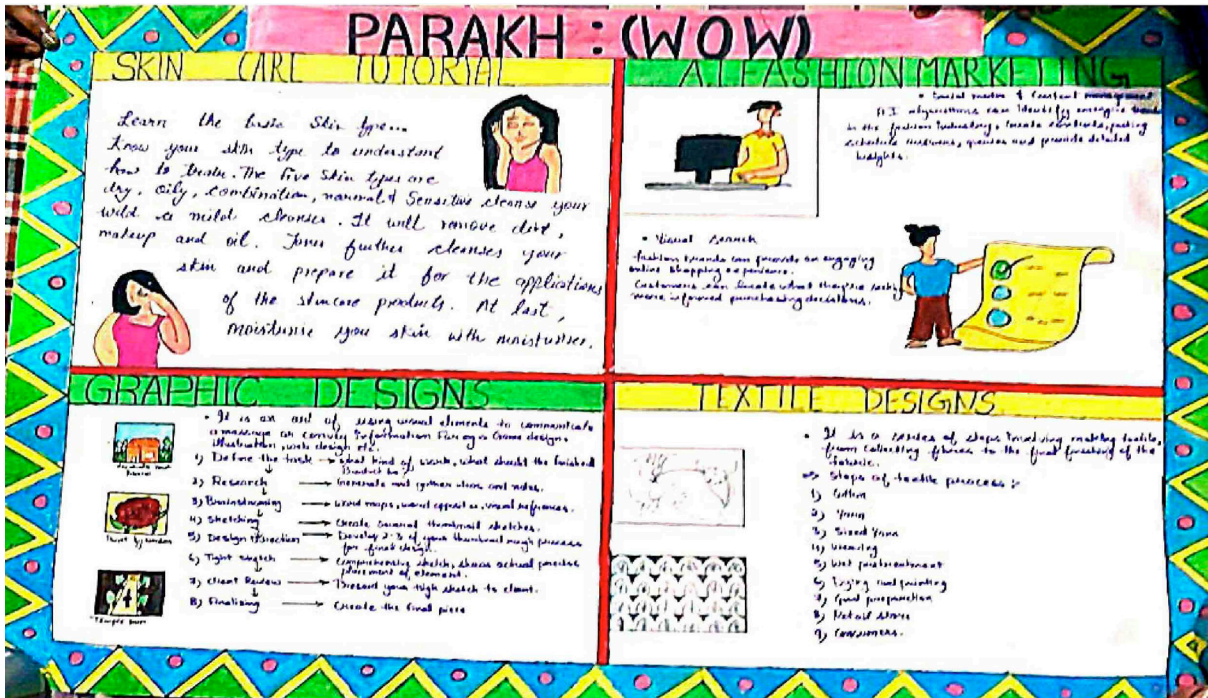 PARAKH : (WOW)
SKIN CARE TUTORIAL
Learn the basic Skin type...
Know your skin type to understand
how to Treate. The Five Skin types are
dry, oily, combination, normal & Sensitive cleanse your
wild a mild cleanser. It will remove dirt,
makeup and oil. Toner further cleanses your
skin and prepare it for the applications
of the skincare products. At last,
moisturise you skin with moisturiser.
A.I FASHION MARKETING
• Social media & Content management
A.I algorithms can identify emerging
in the fashion industry,
schedule audiences, and provide detailed
insights.
• Visual Search
fashion brands can provide an engaging
online shopping experience.
Customers can locate what they're
more informed purchasing decisions.
GRAPHIC DESIGNS
• It is an art of using visual elements to communicate
a massage or convey Information For eg :- Game design,
illustration, web design etc.
1) Define the task → what kind of work, what should the finished
Product be?
2) Research → Generate and gather ideas and notes.
3) Brainstorming → Word maps, word opposites, visual refrences.
4) Sketching → Create several thumbnail sketches.
5) Design Direction → Develop 2-3 of your thumbnail rough process
for final design.
6) Tight sketch → Comprehensive sketch, shows actual precise
placement of element.
7) Client Review → Present your tigh sketch to client.
8) Finalizing → Create the final piece
Temple Run
TEXTILE DESIGNS
• It is a series of steps Involving making textile,
from collecting fibres to the final finishing of the
fabric.
Steps of textile process :-
1) Cotton
2) Yarn
3) Sized Yarn
4) Weaving
5) Wet pretreatment
6) Dying and printing
7) Good preparation
8) Retail stores
9) Consumers.